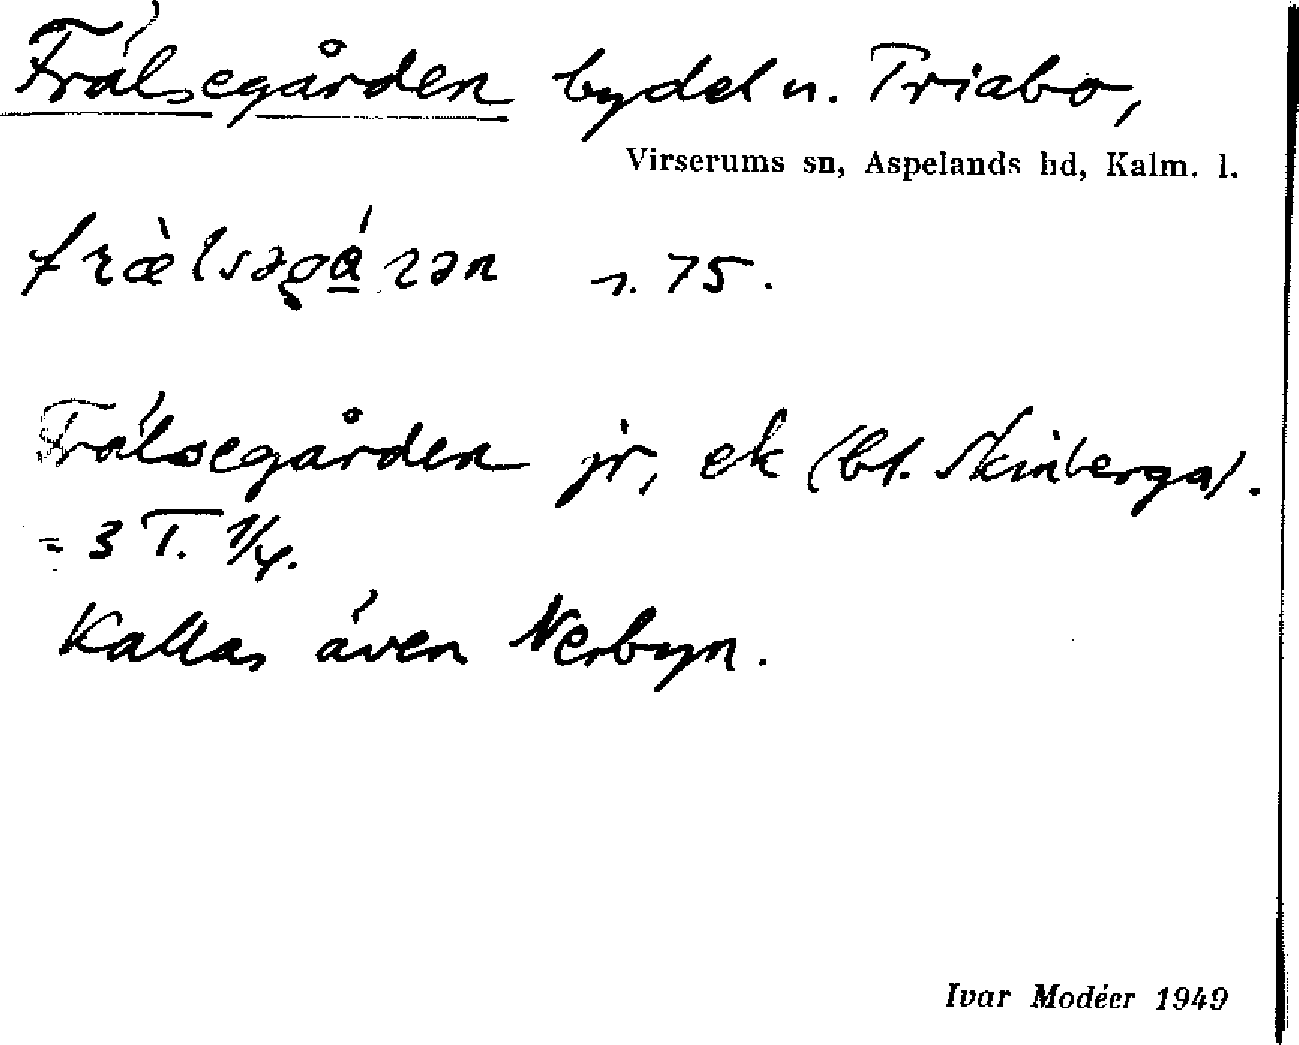 Frälsegården bydel n. Triabo,
Virserums sn, Aspelands hd, Kalm. l.
fræ̀lsəgá̱rən s. 75.
Frälsegården jr, ek (bl. Skinberga).
= 3 T. 1/4.
Kallas även Nerbyn.
Ivar Modéer 1949